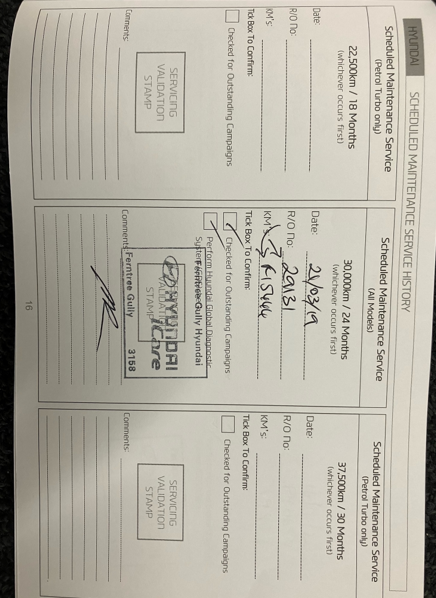 HYUNDAI
SCHEDULED MAINTENANCE SERVICE HISTORY
Scheduled Maintenance Service
(Petrol Turbo only)
22,500km / 18 Months
(whichever occurs first)
Date:
R/O No:
KM's:
Tick Box To Confirm:
Checked for Outstanding Campaigns
SERVICING
VALIDATION
STAMP
Comments:
Scheduled Maintenance Service
(All Models)
30,000km / 24 Months
(whichever occurs first)
Date: 21/03/19
R/O No: 29131
KM's:
Tick Box To Confirm:
Checked for Outstanding Campaigns
Perform Hyundai Global Diagnostic
Ferntree Gully Hyundai
HYUNDAI
iCare
VALIDATION
STAMP
Ferntree Gully 3158
Comments:
Scheduled Maintenance Service
(Petrol Turbo only)
37,500km / 30 Months
(whichever occurs first)
Date:
R/O No:
KM's:
Tick Box To Confirm:
Checked for Outstanding Campaigns
SERVICING
VALIDATION
STAMP
Comments:
16